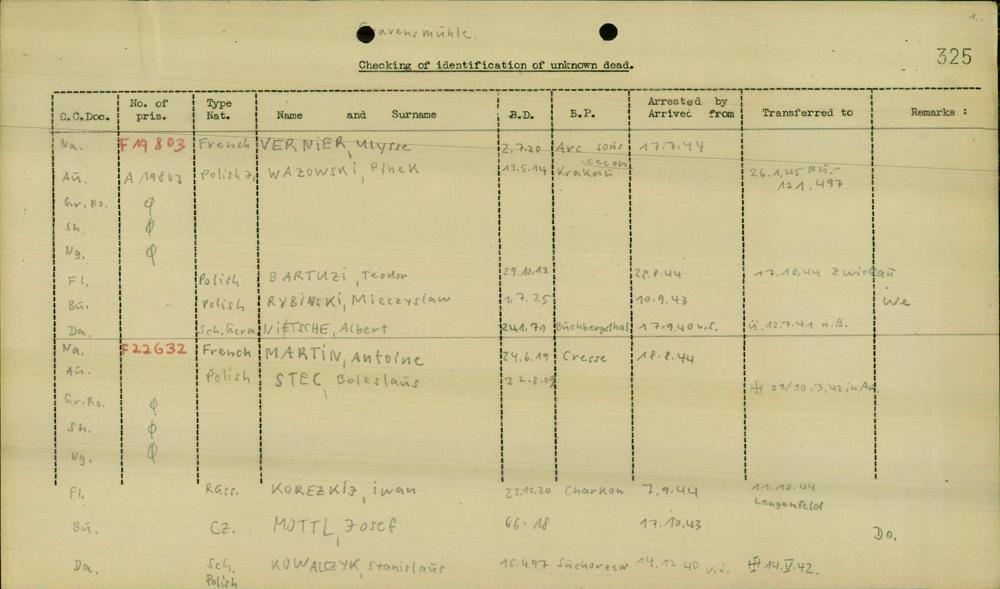 1.
Gravensmühle.
325
Checking of identification of unknown dead.
C.C.Doc. No. of pris. Type Nat. Name and Surname B.D. B.P. Arrested by Arrived from Transferred to Remarks :
Na. F 19 803 French VERNIER, Ulysse 2.7.20 Arc sous secon 17.7.44
Aŭ. A 19803 Polish J. WAZOWSKI, Pinek 13.5.14 Krakoŭ 26.1.45 Bŭ.-
121.497
Gr.Ro. φ
Sh. φ
Ng. φ
Fl. Polish BARTUZI, Teodor 29.10.12 28.8.44 17.10.44 Zwickaŭ
Bŭ. Polish RYBINSKI, Mieczyslaw 1.7.25 10.9.43 we
Da. Sch. Germ NIETSCHE, Albert 24.1.79 Büchbergsthal 17.9.40 v.S. ü 12.7.41 n.B.
Na. F22632 French MARTIN, Antoine 24.6.19 Cresse 18.8.44
Aŭ. Polish STEC, Boleslaŭs 22.8.09 29/30.3.42 in Aŭ.
Gr.Ro. φ
Sh. φ
Ng. φ
Fl. Rŭss. KOREZKIJ, iwan 23.12.20 Charkow 7.9.44 11.10.44
Lengenfeld
Bŭ. Cz. MOTTL, Josef 6.6.18 17.10.43 Do.
Da. Sch. Polish KOWALCZYK, Stanislaŭs 15.4.97 14.12.40 v.S. 14.V.42.